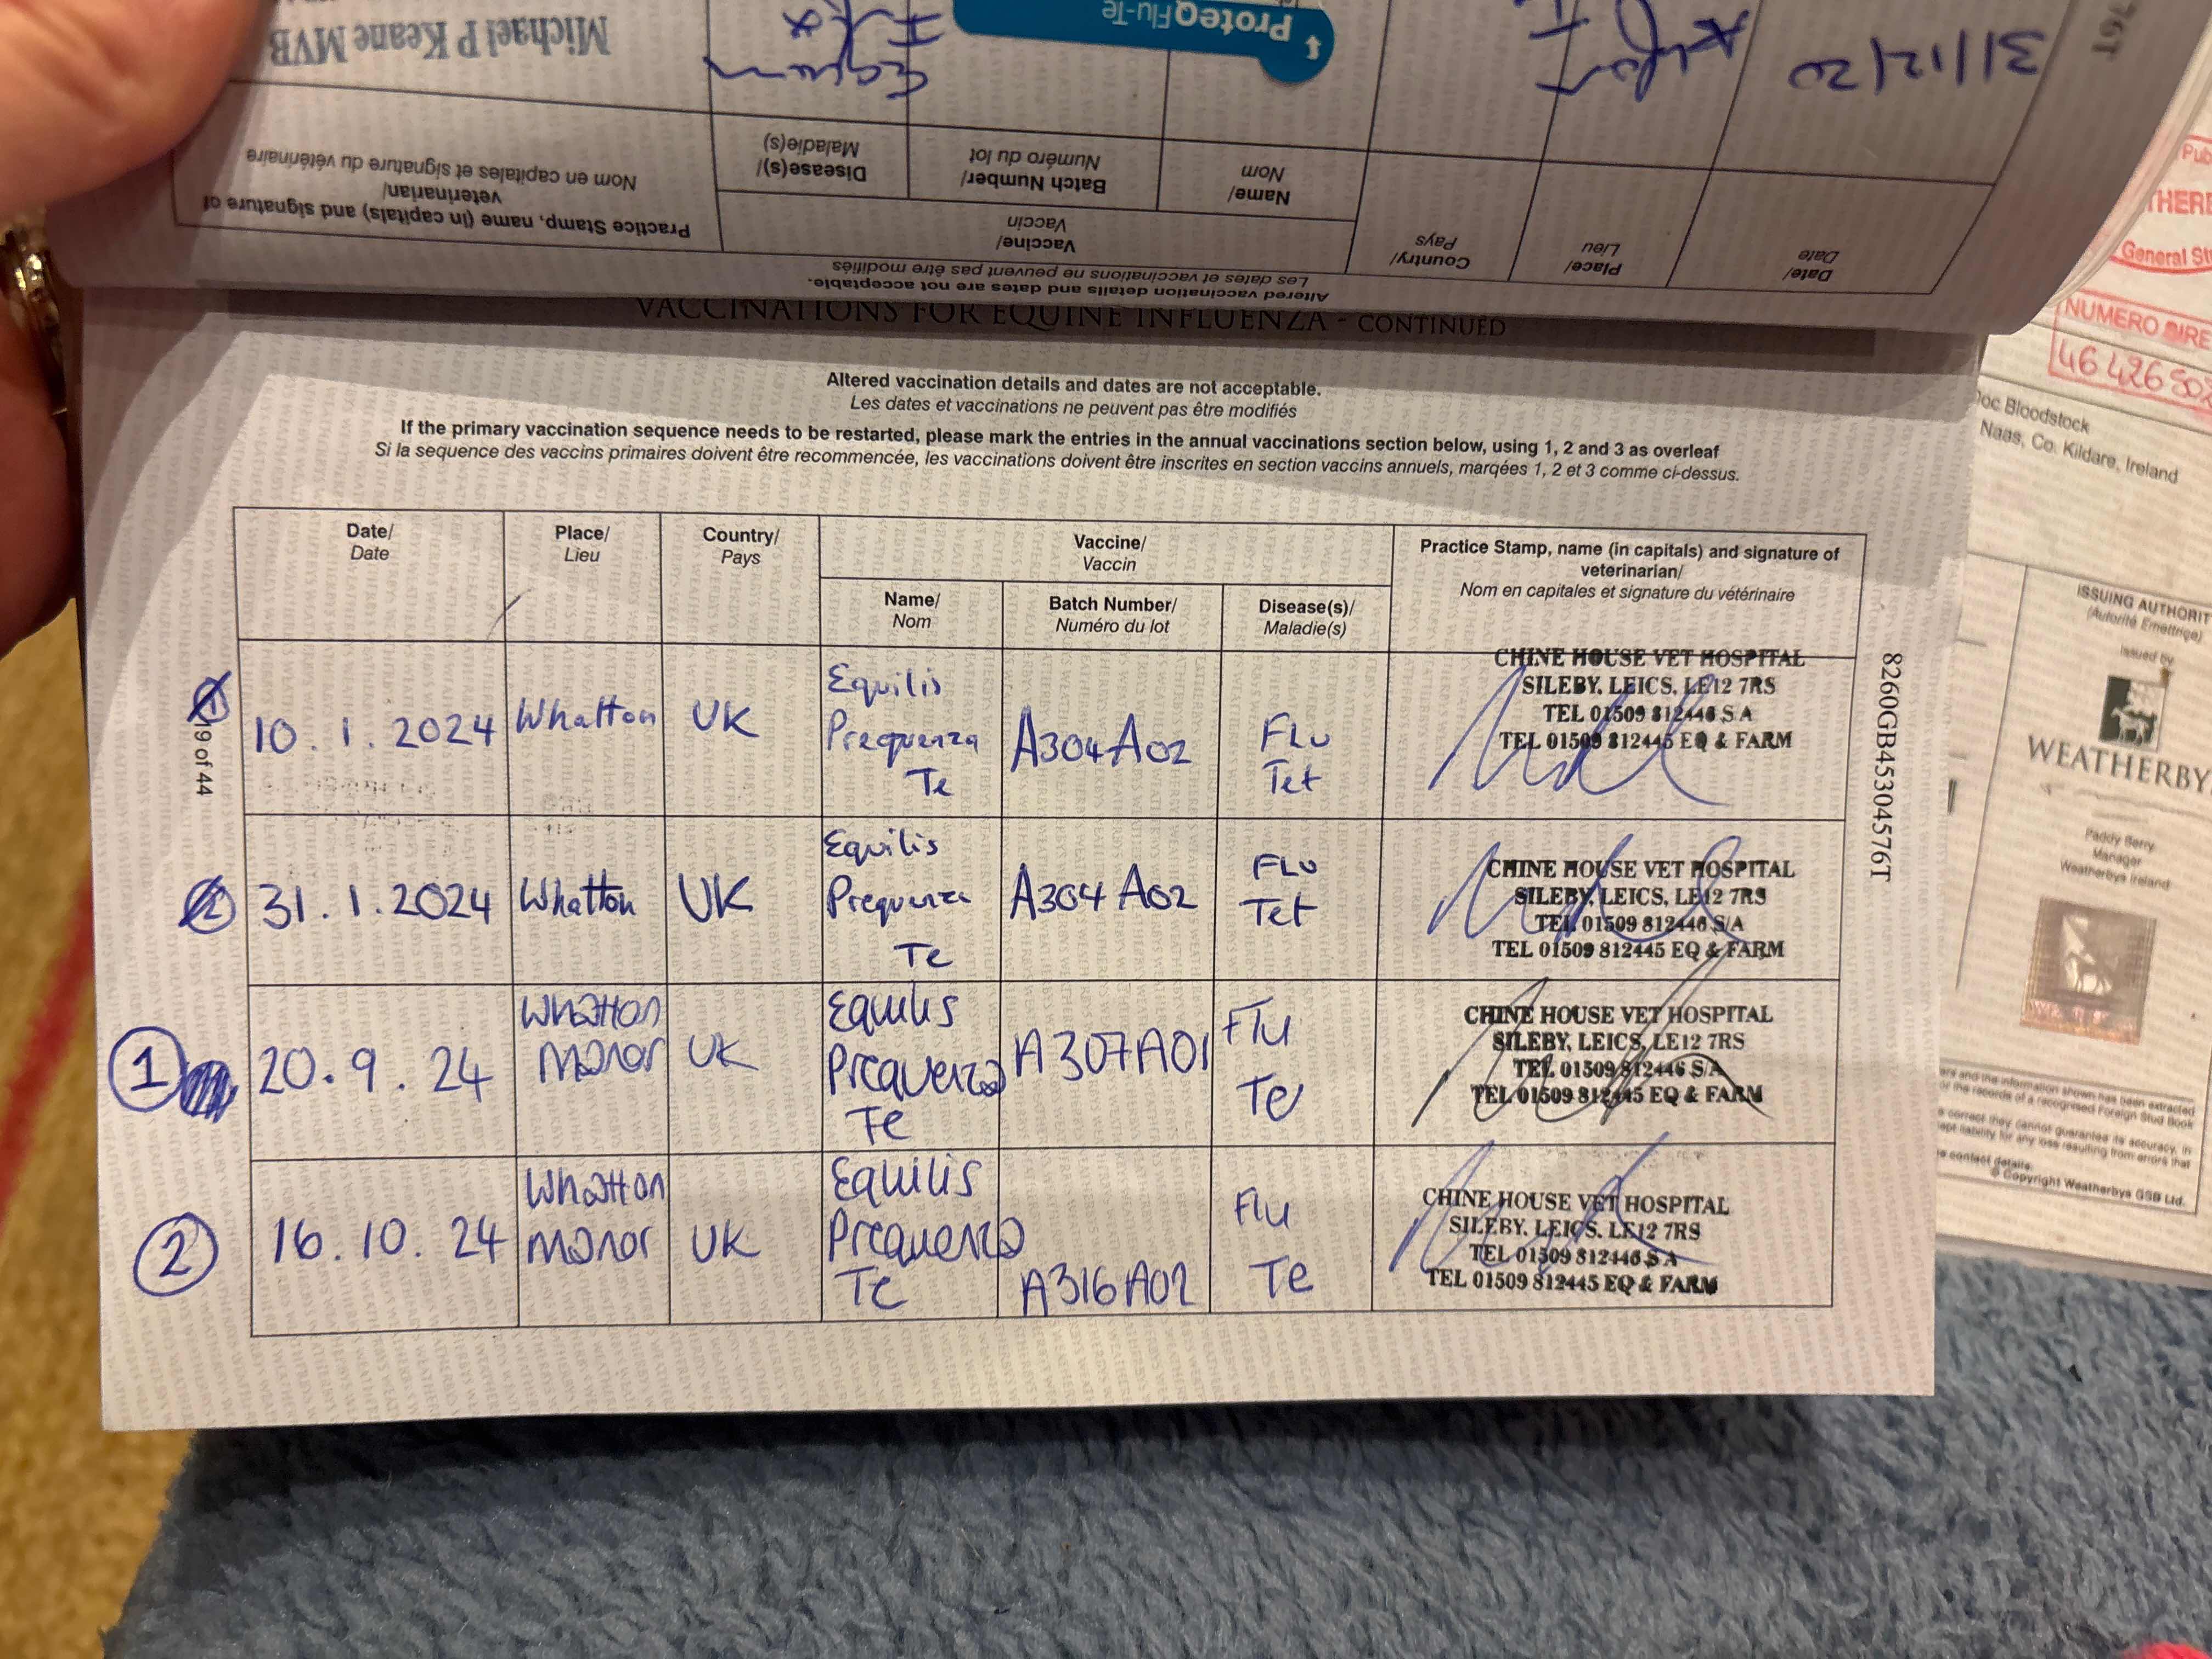 31/12/20
Equine
ProteqFlu-Te
Michael P Keane MVB
Date/
Date
Place/
Lieu
Country/
Pays
Vaccine/
Vaccin
Name/
Nom
Batch Number/
Numéro du lot
Disease(s)/
Maladie(s)
Practice Stamp, name (in capitals) and signature of
veterinarian/
Nom en capitales et signature du vétérinaire
Altered vaccination details and dates are not acceptable.
Les dates et vaccinations ne peuvent pas être modifiés
76T
VACCINATIONS FOR EQUINE INFLUENZA - CONTINUED
Altered vaccination details and dates are not acceptable.
Les dates et vaccinations ne peuvent pas être modifiés
If the primary vaccination sequence needs to be restarted, please mark the entries in the annual vaccinations section below, using 1, 2 and 3 as overleaf
Si la sequence des vaccins primaires doivent être recommencée, les vaccinations doivent être inscrites en section vaccins annuels, marqées 1, 2 et 3 comme ci-dessus.
Date/
Date
Place/
Lieu
Country/
Pays
Vaccine/
Vaccin
Practice Stamp, name (in capitals) and signature of
veterinarian/
Nom en capitales et signature du vétérinaire
Name/
Nom
Batch Number/
Numéro du lot
Disease(s)/
Maladie(s)
10.1.2024
Whatton
UK
Equilis
Prequenza
Te
A304A02
Flu
Tet
CHINE HOUSE VET HOSPITAL
SILEBY, LEICS, LE12 7RS
TEL 01509 812446 S A
TEL 01509 812445 EQ & FARM
2
31.1.2024
Whatton
UK
Equilis
Prequenza
Te
A304A02
FLU
Tet
CHINE HOUSE VET HOSPITAL
SILEBY, LEICS, LE12 7RS
TEL 01509 812446 S/A
TEL 01509 812445 EQ & FARM
1
20.9.24
Whatton
Manor
UK
Equilis
Prequenza
Te
A307A01
Flu
Te
CHINE HOUSE VET HOSPITAL
SILEBY, LEICS, LE12 7RS
TEL 01509 812446 S/A
TEL 01509 812445 EQ & FARM
2
16.10.24
Whatton
Manor
UK
Equilis
Prequenza
Te
A316A02
Flu
Te
CHINE HOUSE VET HOSPITAL
SILEBY, LEICS, LE12 7RS
TEL 01509 812446 S A
TEL 01509 812445 EQ & FARM
19 of 44
8260GB45304576T
General Stu
NUMERO SIRE
46 426 502
Doc Bloodstock
Naas, Co. Kildare, Ireland
ISSUING AUTHORIT
(Autorité Emettrice)
Issued by
WEATHERBY
Paddy Berry
Manager
Weatherbys Ireland
ers and the information shown has been extracted
or the records of a recognised Foreign Stud Book
correct they cannot guarantee its accuracy, in
ept liability for any loss resulting from errors that
contact details.
© Copyright Weatherbys GSB Ltd.